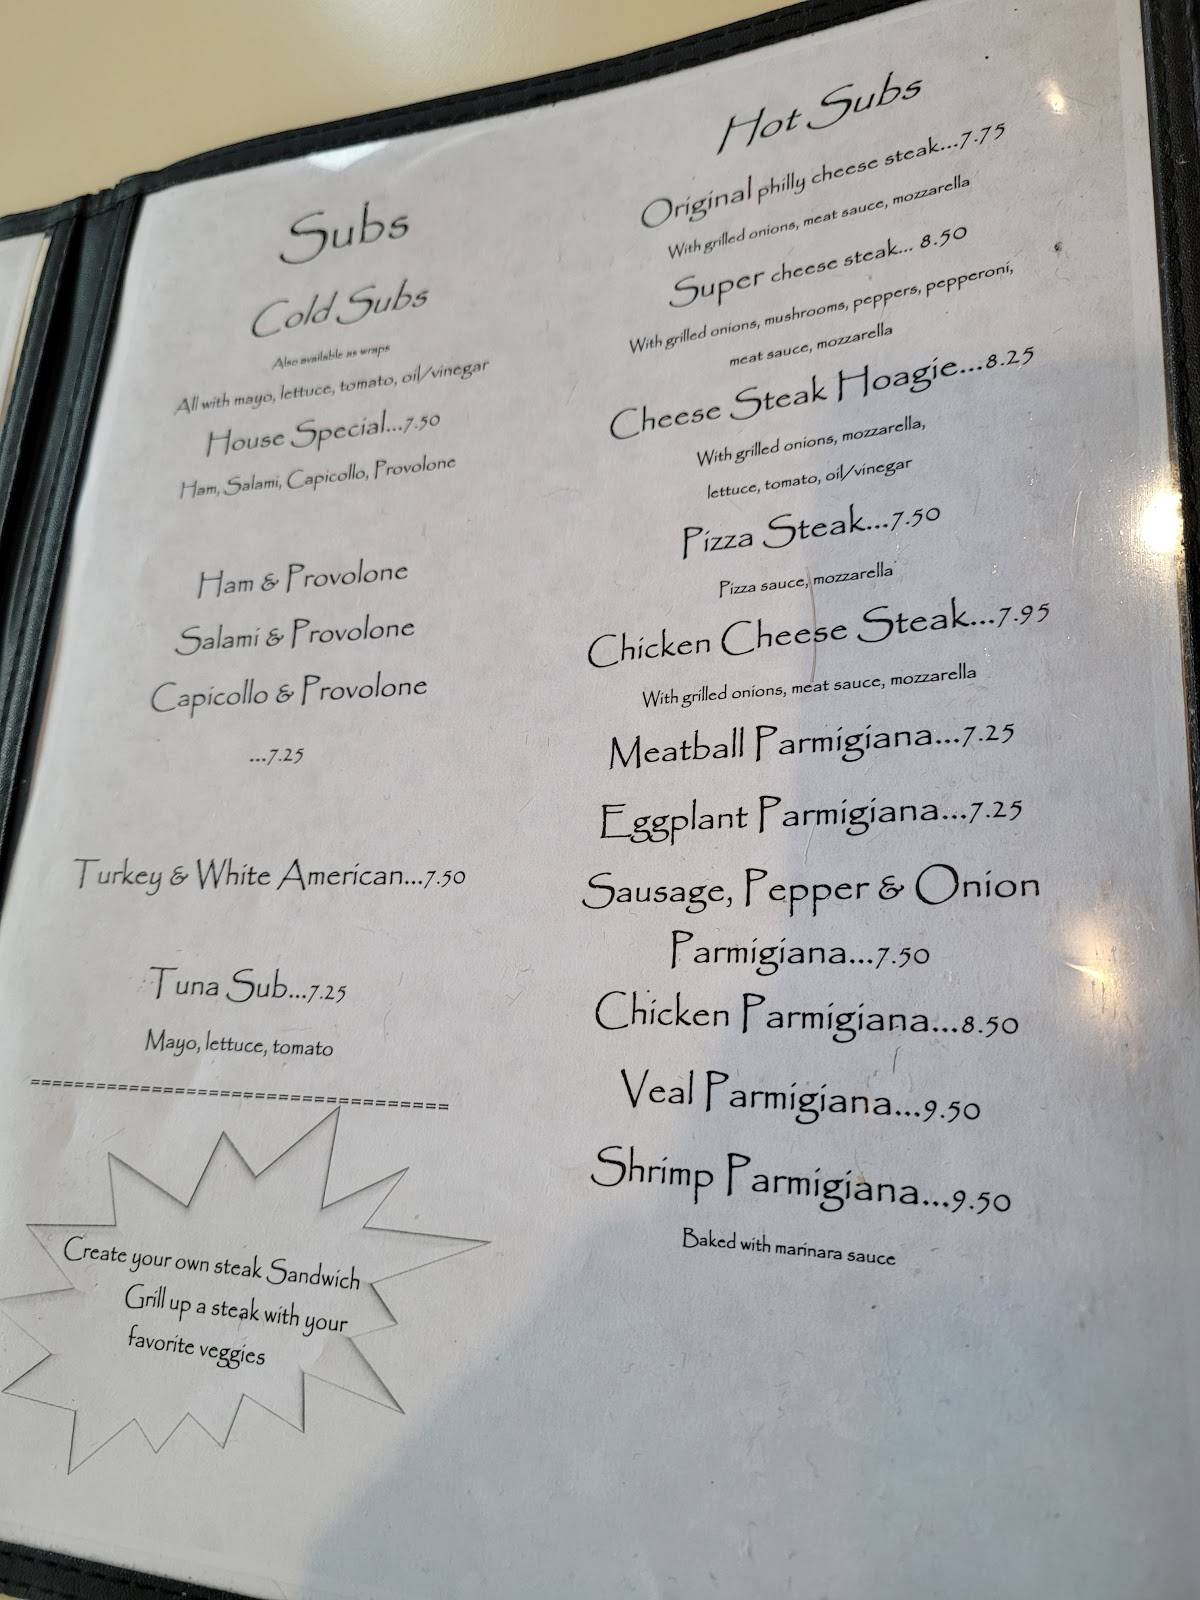 Subs
Cold Subs
Also available as wraps
All with mayo, lettuce, tomato, oil/vinegar
House Special...7.50
Ham, Salami, Capicollo, Provolone
Ham & Provolone
Salami & Provolone
Capicollo & Provolone
...7.25
Turkey & White American...7.50
Tuna Sub...7.25
Mayo, lettuce, tomato
======================================
Create your own steak Sandwich
Grill up a steak with your
favorite veggies
Hot Subs
Original philly cheese steak...7.75
With grilled onions, meat sauce, mozzarella
Super cheese steak... 8.50
With grilled onions, mushrooms, peppers, pepperoni,
meat sauce, mozzarella
Cheese Steak Hoagie...8.25
With grilled onions, mozzarella,
lettuce, tomato, oil/vinegar
Pizza Steak...7.50
Pizza sauce, mozzarella
Chicken Cheese Steak...7.95
With grilled onions, meat sauce, mozzarella
Meatball Parmigiana...7.25
Eggplant Parmigiana...7.25
Sausage, Pepper & Onion
Parmigiana...7.50
Chicken Parmigiana...8.50
Veal Parmigiana...9.50
Shrimp Parmigiana...9.50
Baked with marinara sauce